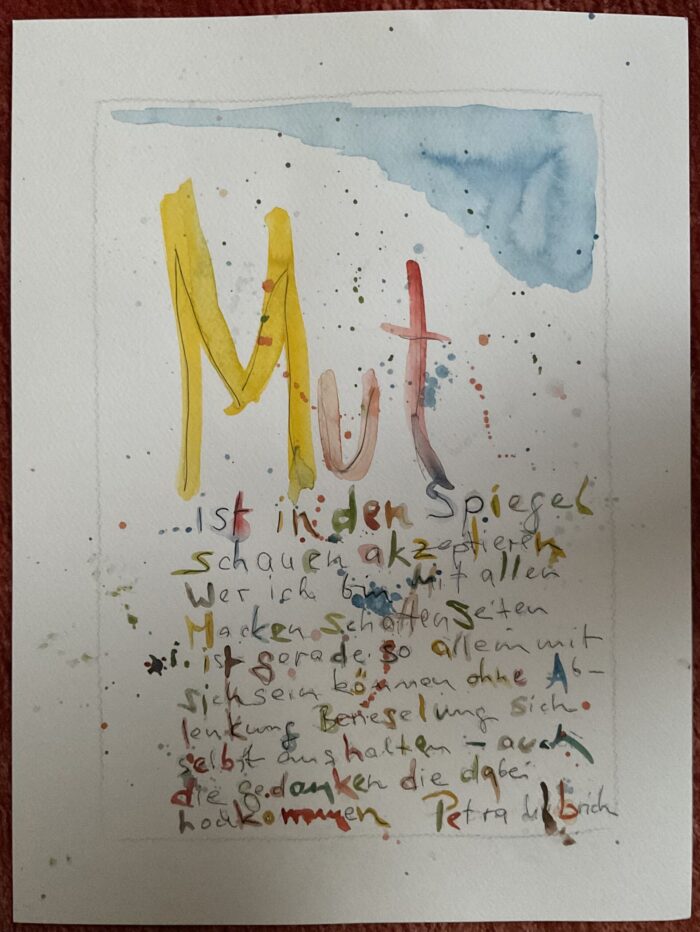 Mut
...ist in den Spiegel
schauen akzeptieren
Wer ich bin mit allen
Macken Schattenseiten
ist gerade so allein mit
sich sein können ohne Ab-
lenkung Berieselung sich
selbst aushalten - auch
die gedanken die dabei
hochkommen Petra